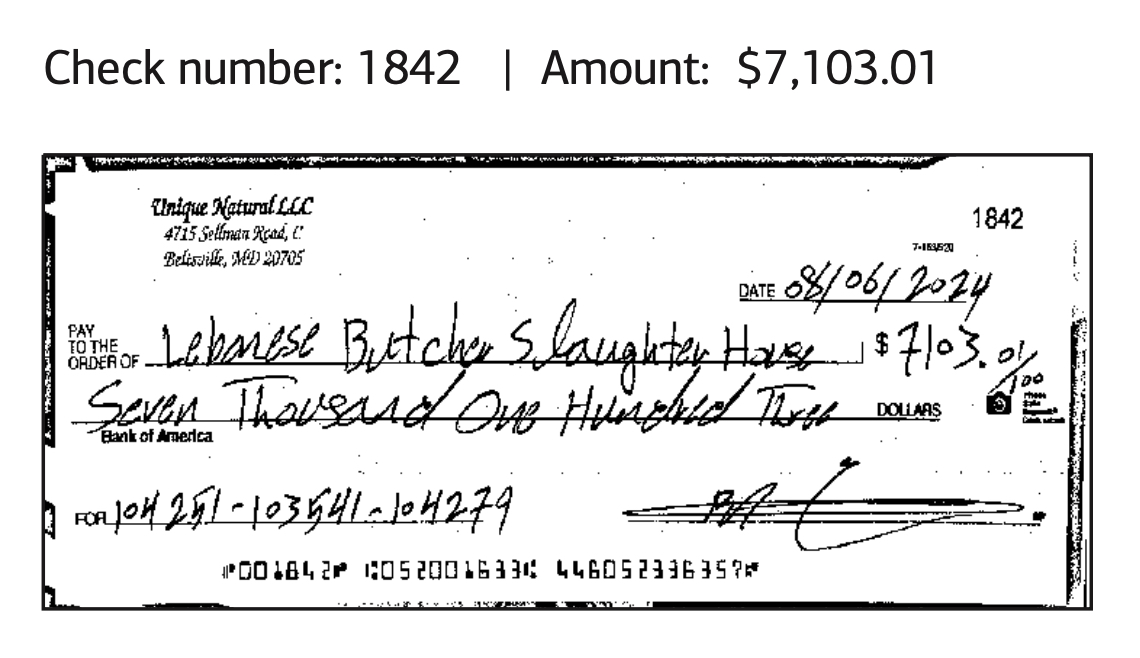 Check number: 1842 | Amount: $7,103.01
Unique Natural LLC
4715 Sellman Road, C
Beltsville, MD 20705
1842
7-163/520
DATE 08/06/2024
PAY TO THE ORDER OF Lebanese Butcher Slaughter House $ 7103.01/100
Seven Thousand One Hundred Three DOLLARS
Bank of America
FOR 104251-103541-104279
⑈001842⑈ ⑆052001633⑆ 446052336357⑈